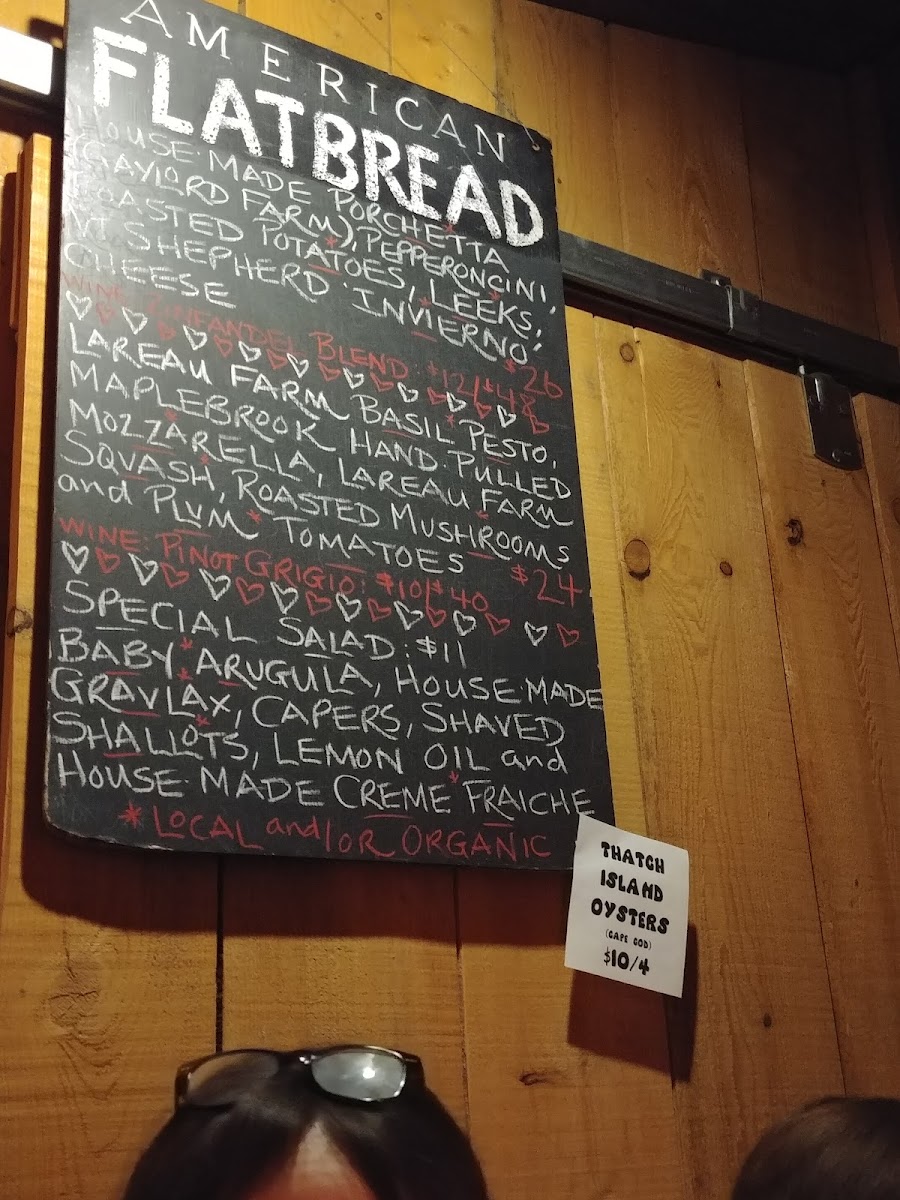 AMERICAN
FLATBREAD
HOUSE·MADE PORCHETTA
(GAYLORD FARM), PEPPERONCINI,
ROASTED POTATOES, LEEKS,
VT SHEPHERD 'INVIERNO'
CHEESE $26
WINE: ZINFANDEL BLEND: $12/$48
LAREAU FARM BASIL* PESTO,
MAPLEBROOK HAND·PULLED
MOZZARELLA, LAREAU FARM
SQUASH*, ROASTED MUSHROOMS
and PLUM* TOMATOES $24
WINE: PINOT GRIGIO: $10/$40
SPECIAL SALAD: $11
BABY* ARUGULA, HOUSE·MADE
GRAVLAX, CAPERS, SHAVED
SHALLOTS, LEMON OIL and
HOUSE·MADE CREME* FRAICHE
*LOCAL and/OR ORGANIC
THATCH
ISLAND
OYSTERS
(CAPE COD)
$10/4